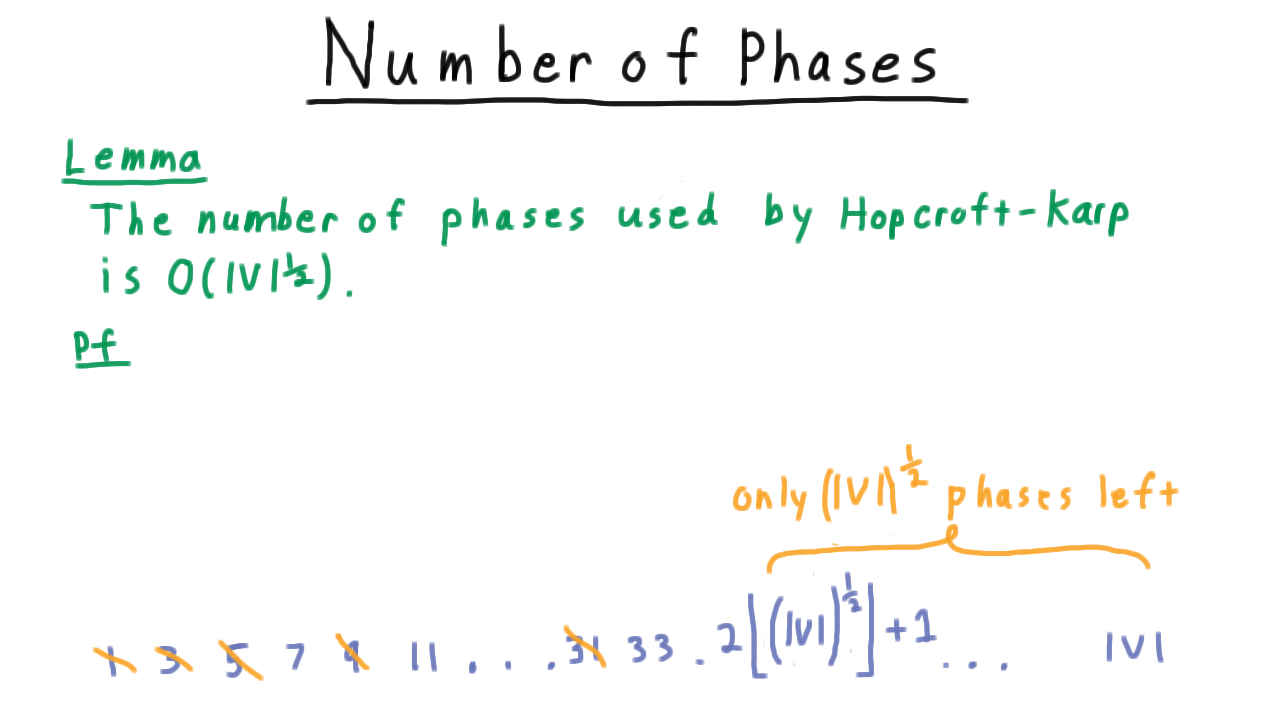 Number of Phases
Lemma
The number of phases used by Hopcroft-Karp
is O(|V|^½).
Pf
only (|V|)^½ phases left
1 3 5 7 9 11 . . . 31 33 . 2⌊(|V|)^½⌋+1 . . . |V|